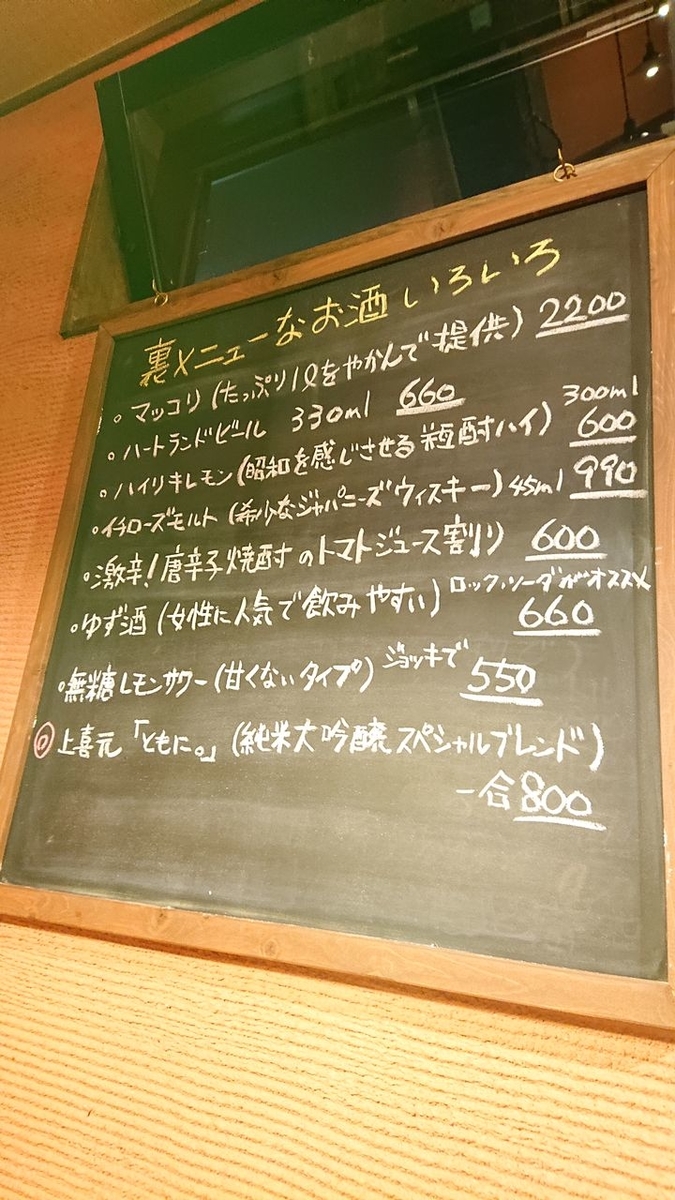 裏メニューなお酒いろいろ
。マッコリ(たっぷり1ℓをやかんで提供) 2200
。ハートランドビール 330ml 660
。ハイリキレモン(昭和を感じさせる瓶酎ハイ) 300ml 600
。イチローズモルト(希少なジャパニーズウィスキー) 45ml 990
。激辛!唐辛子焼酎のトマトジュース割り 600
。ゆず酒(女性に人気で飲みやすい) ロック、ソーダがオススメ 660
。無糖レモンサワー(甘くないタイプ) ジョッキで 550
◎上喜元「ともに。」(純米大吟醸スペシャルブレンド)
一合 800